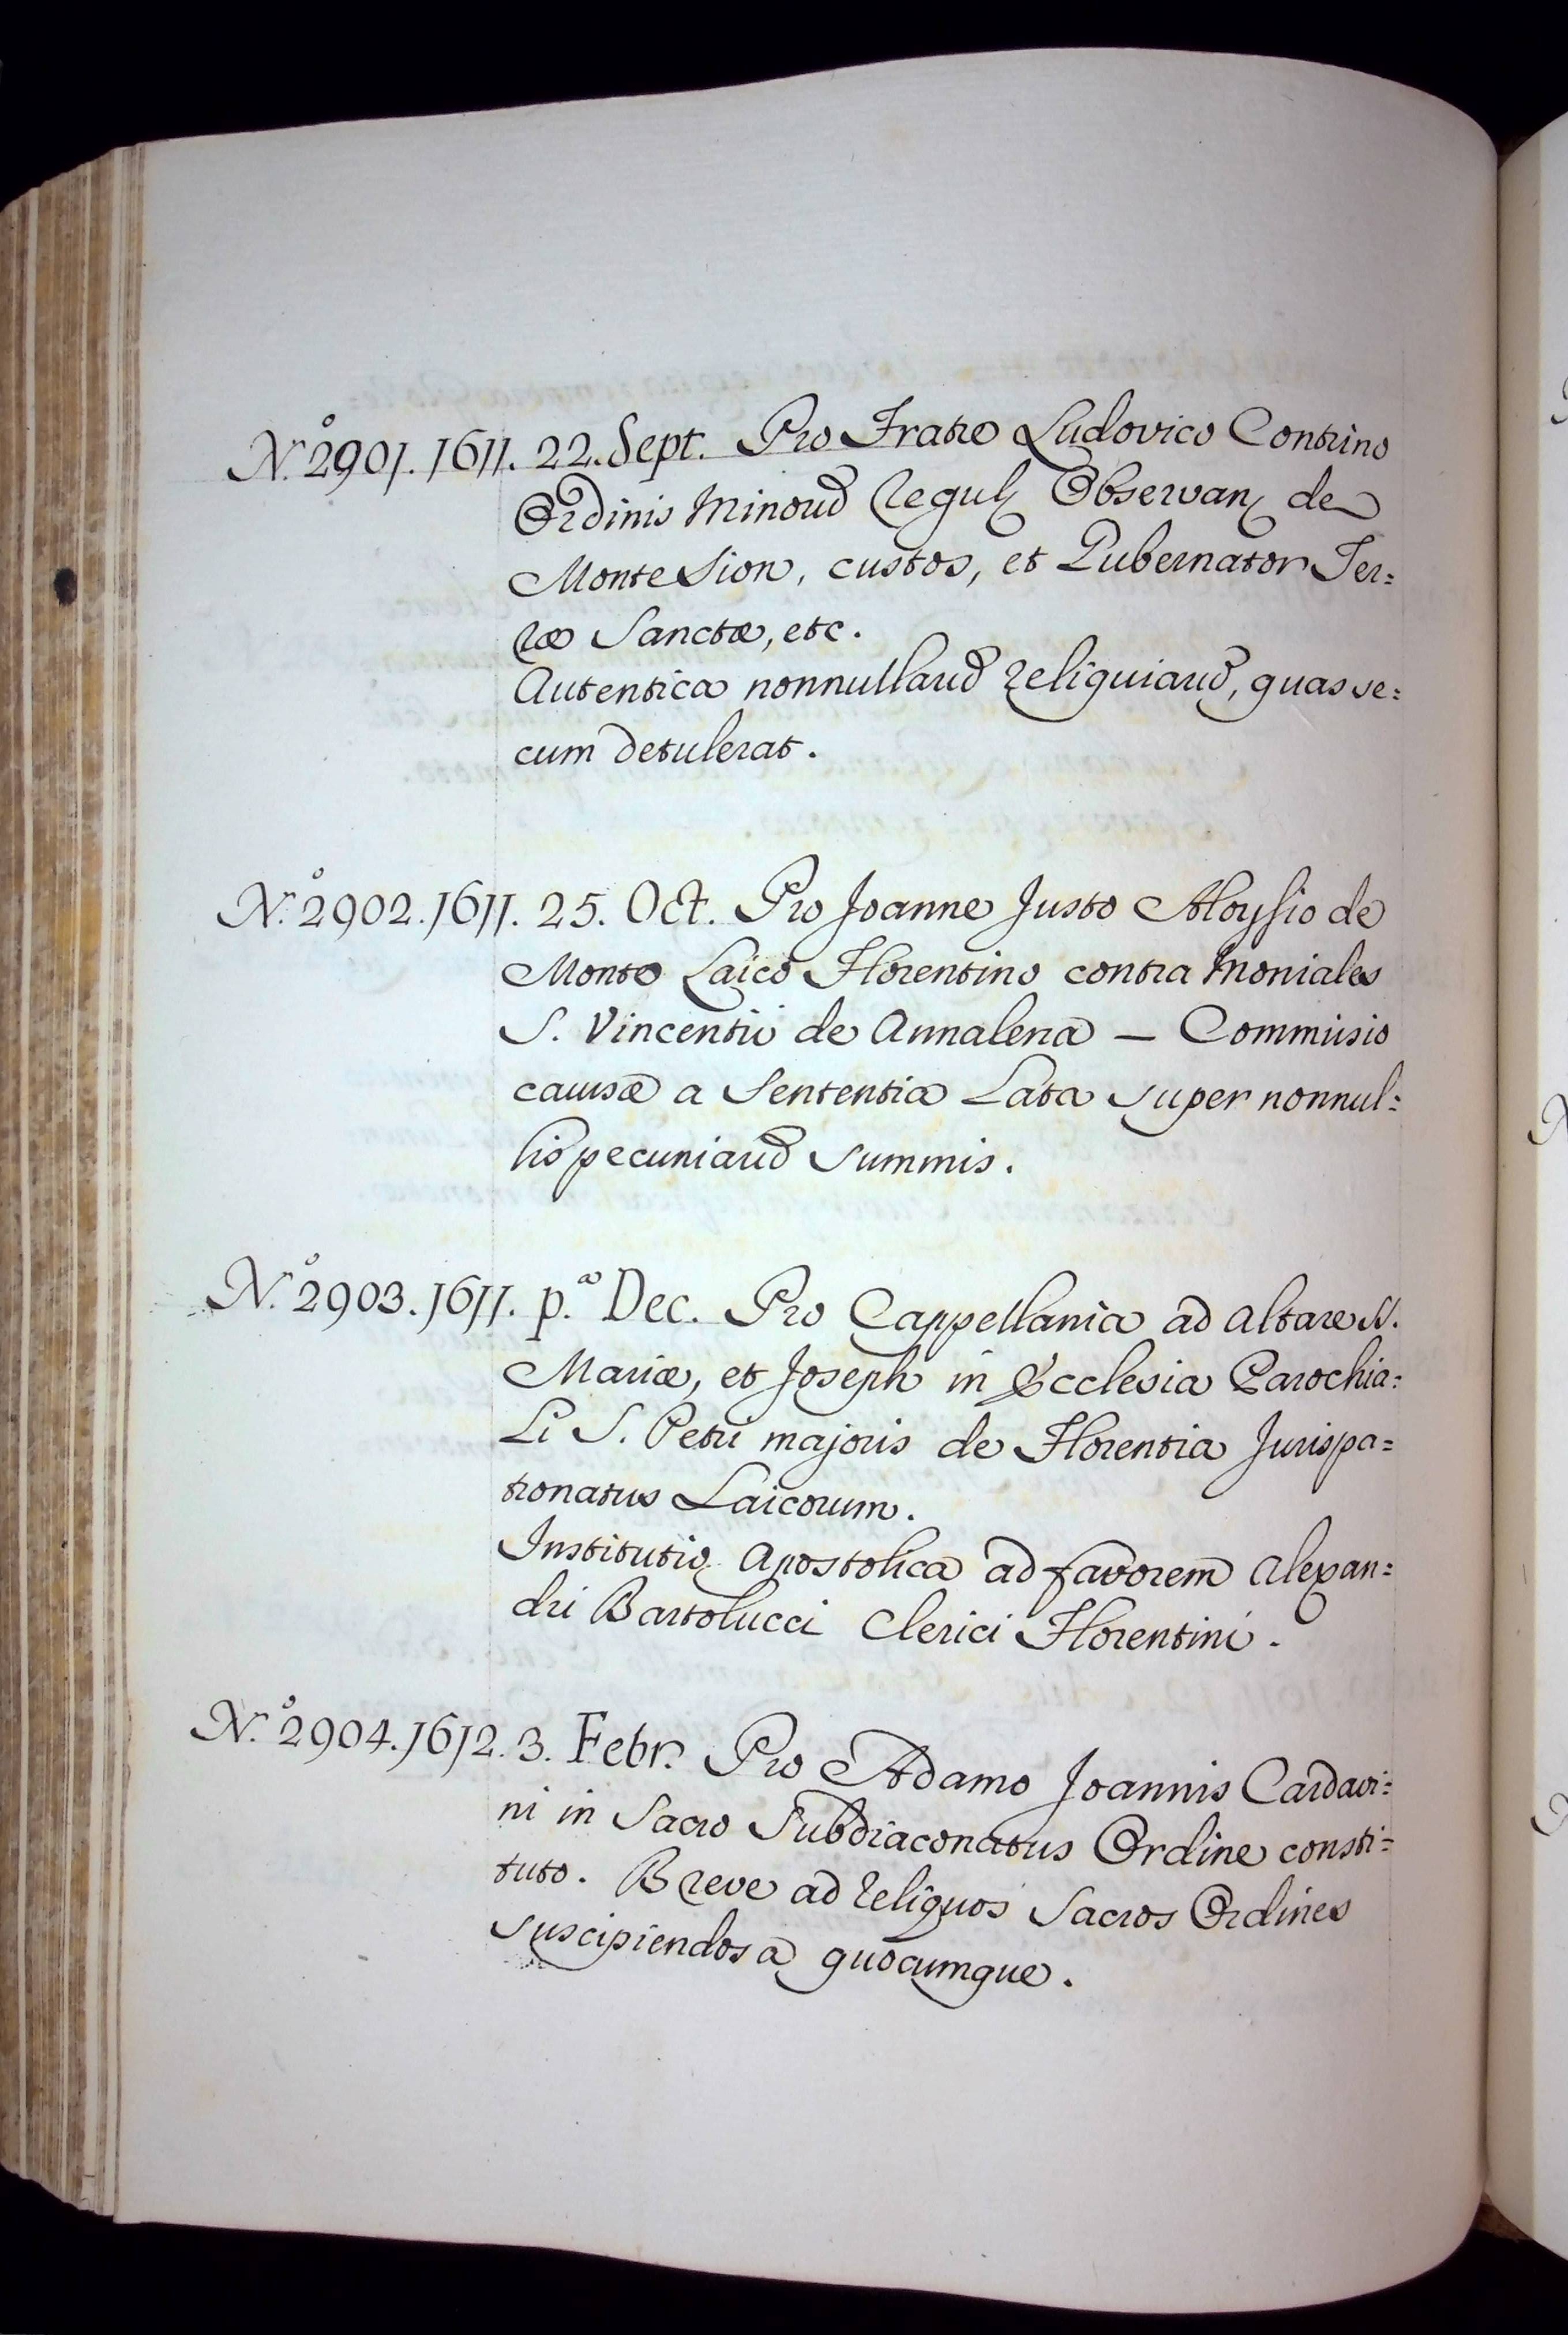 N.º 2901. 1611. 22. Sept. Pro Fratre Ludovico Contrino
Ordinis Minorũ Regul. Observan. de
Monte Sion, custos, et Gubernator Ter=
ræ Sanctæ, etc.
Autentica nonnullarũ reliquiarũ, quas se=
cum detulerat.
N.º 2902. 1611. 25. Oct. Pro Joanne Justo Aloysio de
Monte Laico Florentino contra Moniales
S. Vincentii de Annalena — Commissio
causæ a Sententia Lata super nonnul=
lis pecuniarũ summis.
N.º 2903. 1611. p.ª Dec. Pro Cappellania ad Altare SS.
Mariæ, et Joseph in Ecclesia Parochia=
li S. Petri majoris de Florentia Jurispa=
tronatus Laicorum.
Institutio Apostolica ad favorem Alexan=
dri Bartolucci Clerici Florentini.
N.º 2904. 1612. 3. Febr. Pro Adamo Joannis Cardavi=
ni in Sacro Subdiaconatus Ordine consti=
tuto. Breve ad reliquos Sacros Ordines
suscipiendos a quocumque.